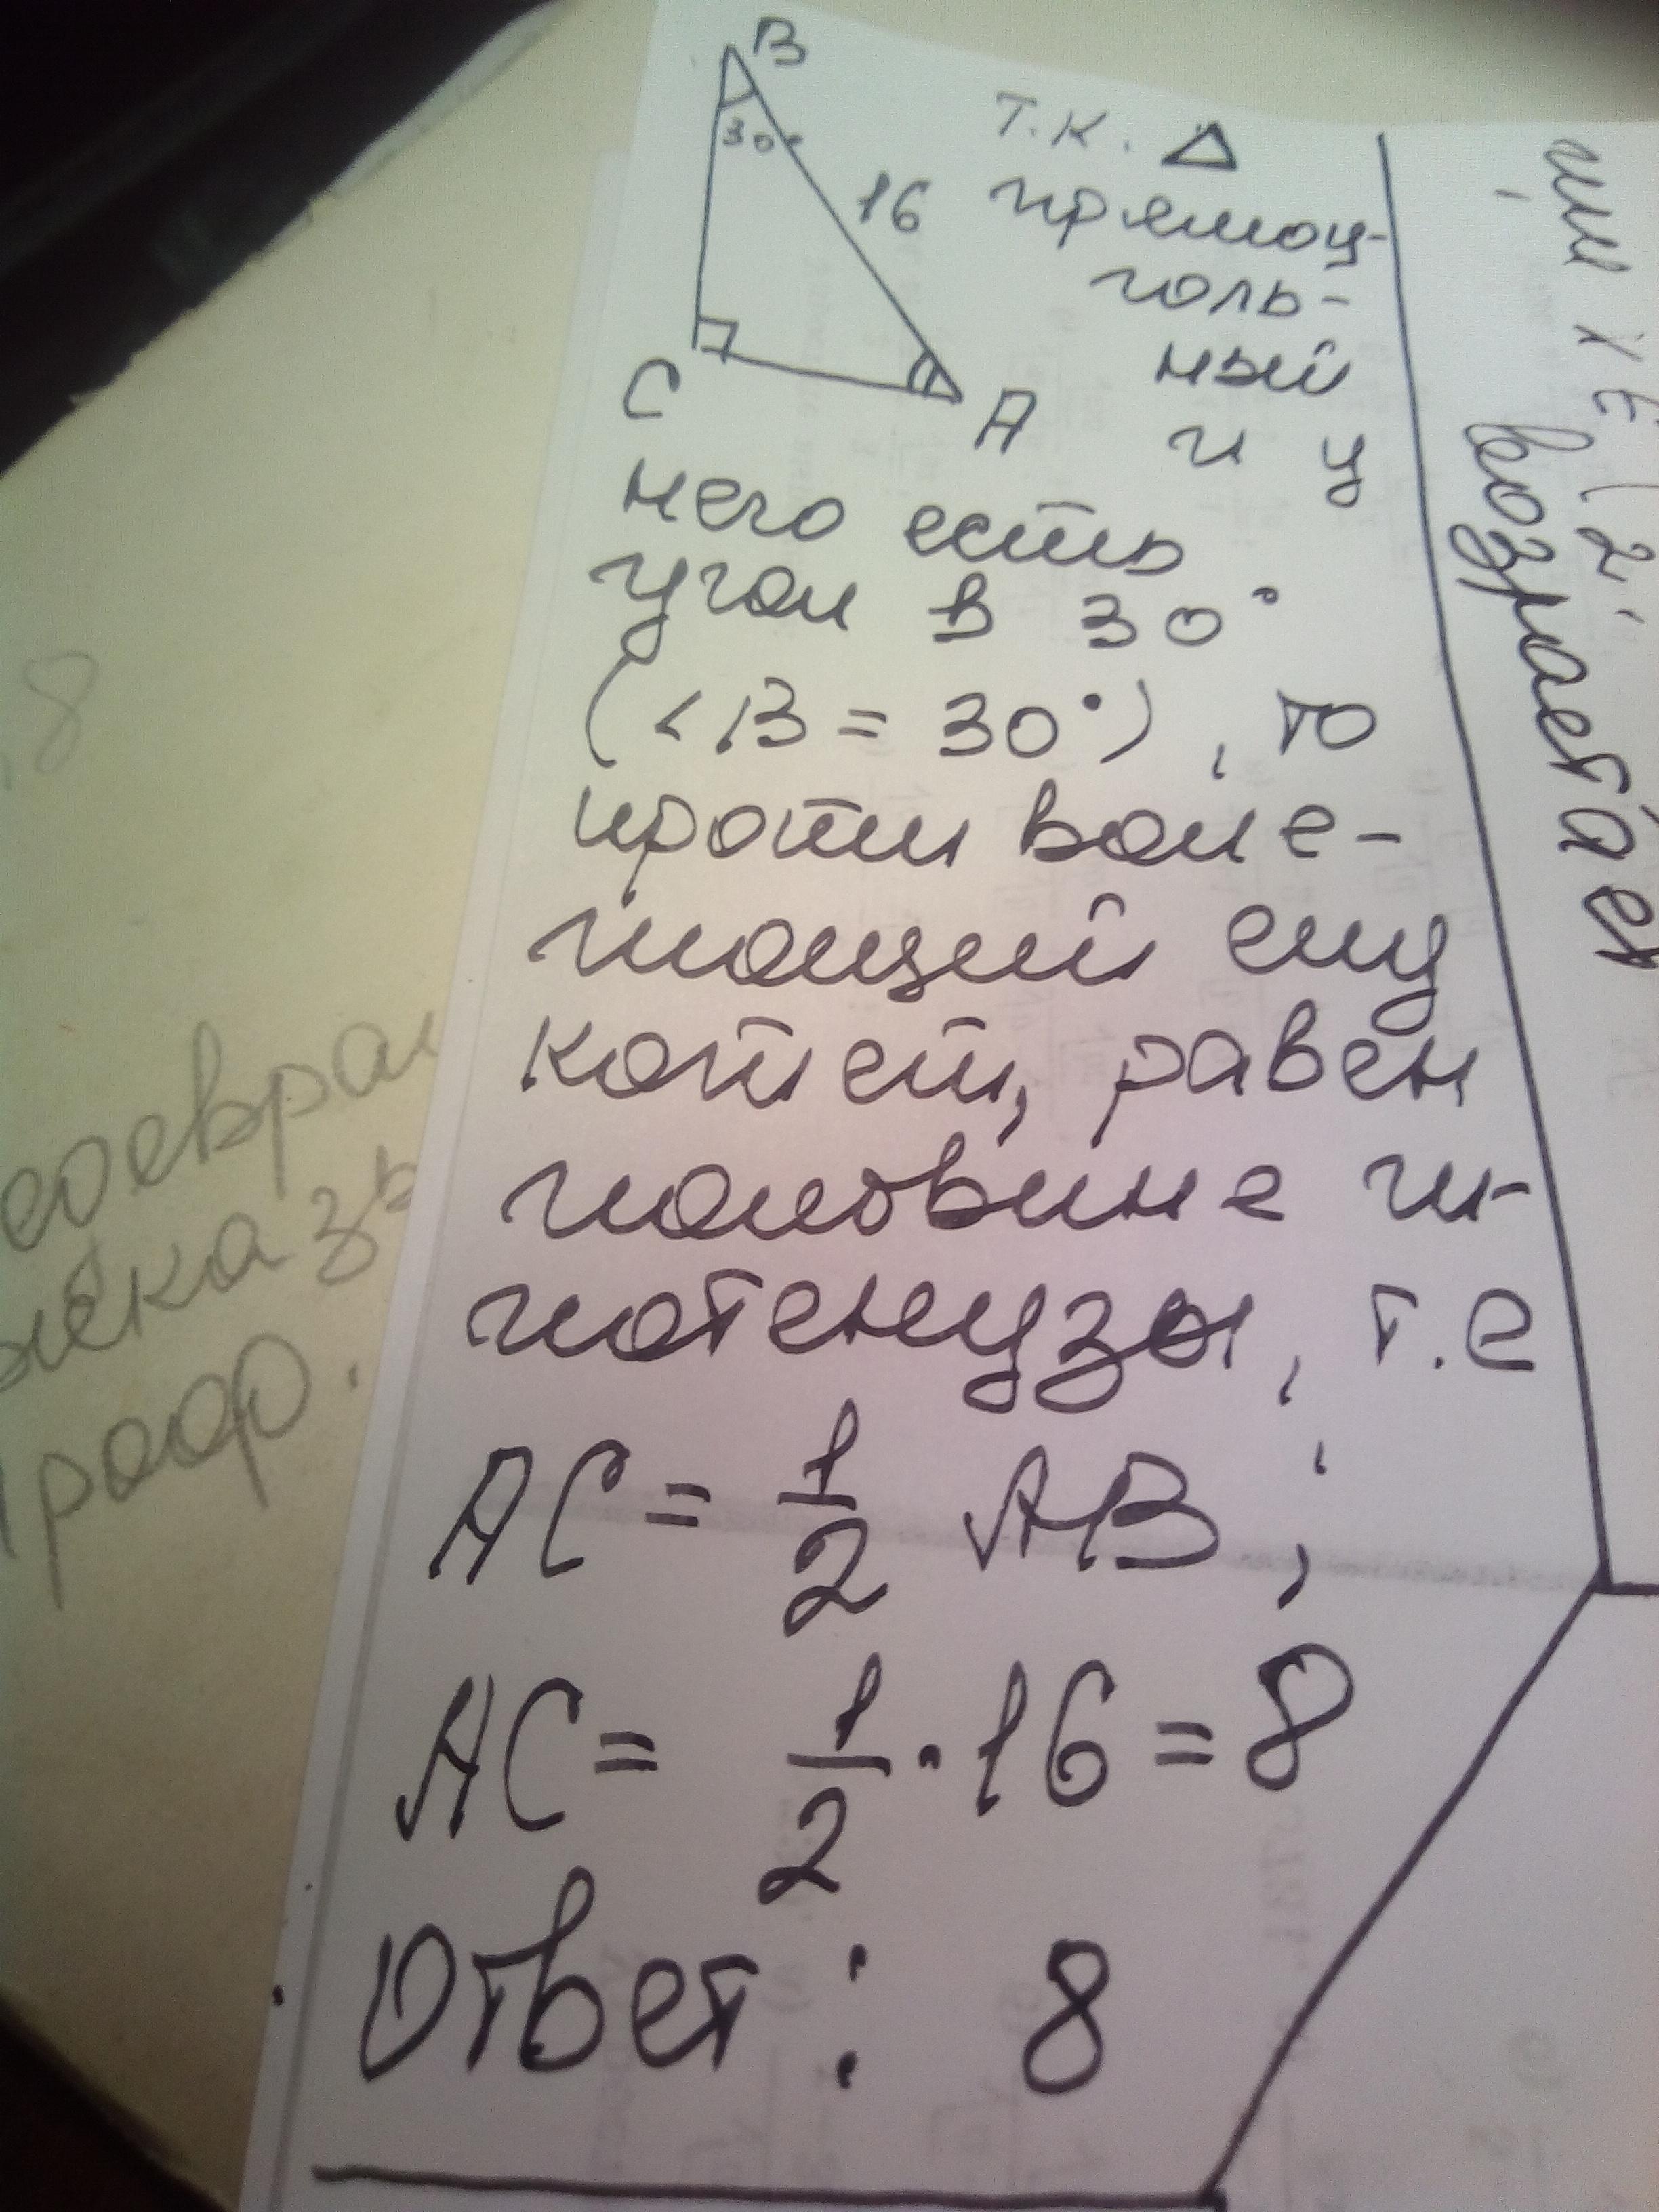 B
30°
16
C
A
т.к. △
прямоу-
голь-
ный
и у
него есть
угол в 30°
(<B = 30°), то
противоле-
жащий ему
катет, равен
половине ги-
потенузы, т.е
AC = 1/2 AB;
AC = 1/2 · 16 = 8
Ответ: 8
x ∈ (2;
возрастает
8